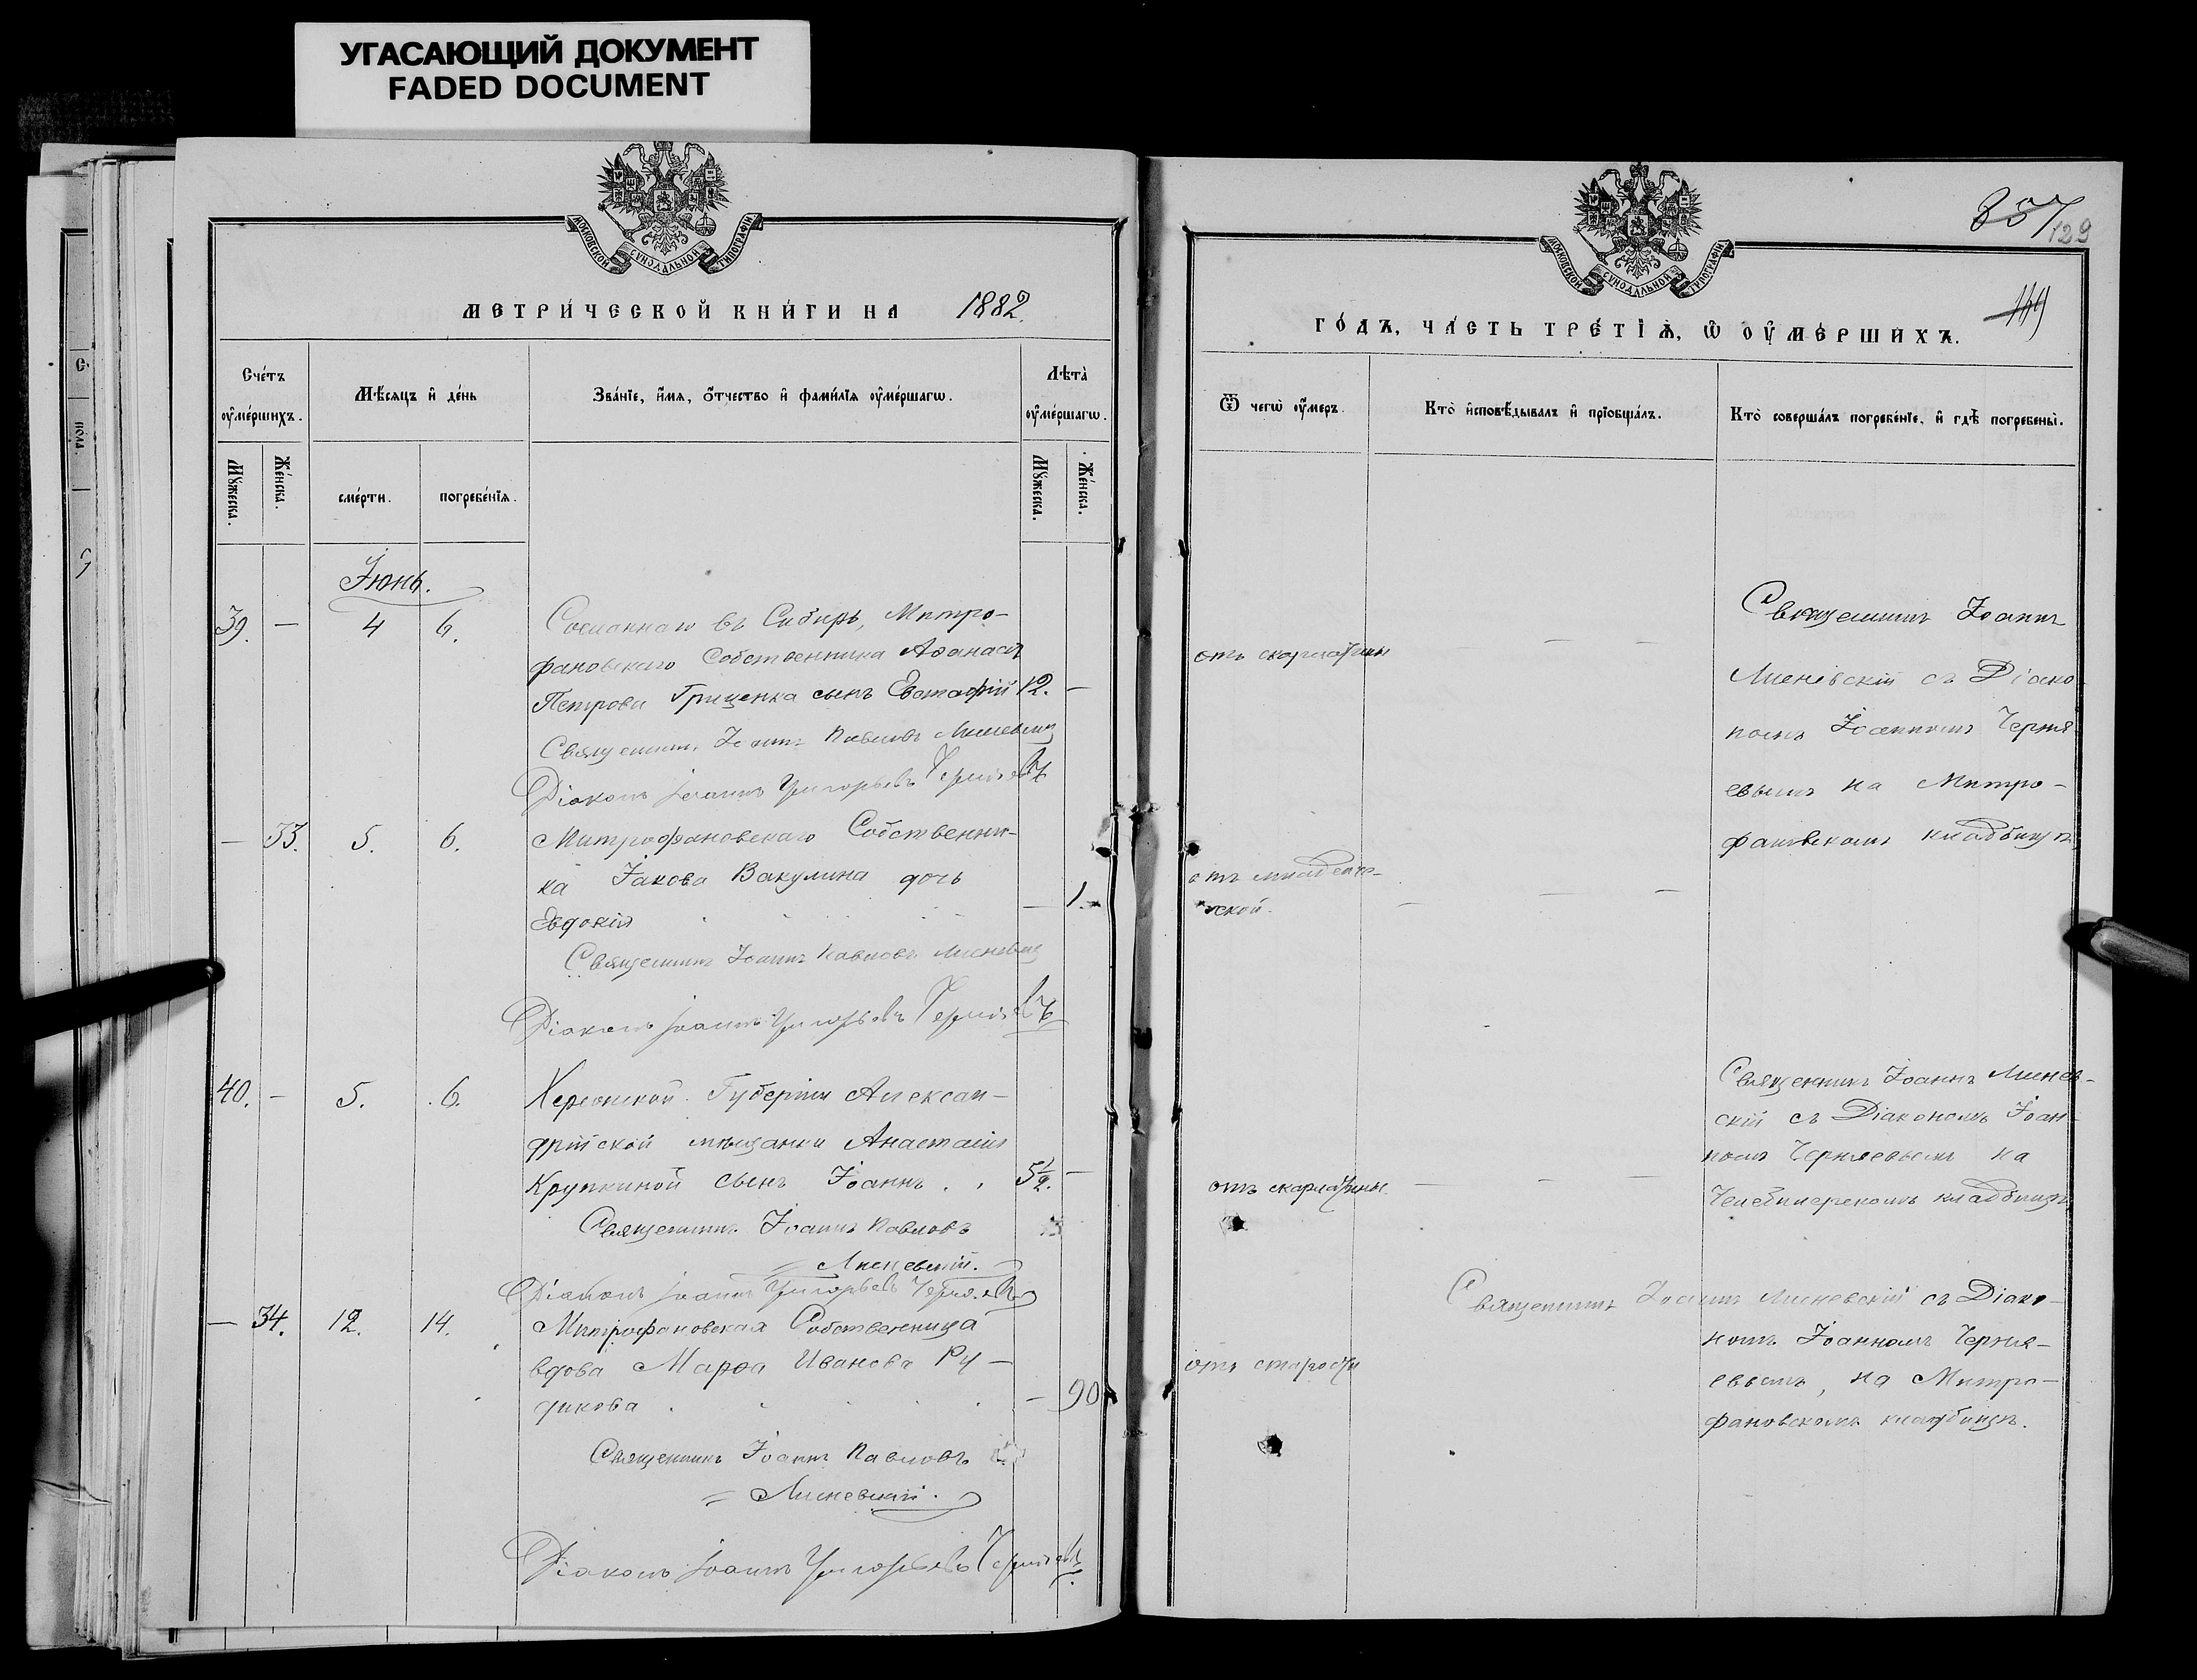 УГАСАЮЩИЙ ДОКУМЕНТ
FADED DOCUMENT
МОСКОВСКОЙ СѴНОДАЛЬНОЙ ТИПОГРАФІИ
МЕТРИ́ЧЕСКОЙ КНИ́ГИ НА 1882.
Сче́тъ ᲂу҆ме́ршихъ.
Мѣ́сяцъ и҆ де́нь
Зва́нїе, и҆́мя, ѻ҆́тчество и҆ фами́лїя ᲂу҆ме́ршагѡ.
Лѣ́та ᲂу҆ме́ршагѡ.
Мꙋ́жеска.
Же́нска.
сме́рти.
погребе́нїя.
Мꙋ́жеска.
Же́нска.
Іюнь.
39. — 4 6. Сосланнаго въ Сибирь, Митро-
фановскаго Собственника Аѳанасія
Петрова Гриценка сынъ Евстафій 12. —
Священникъ Іоаннъ Павловъ Лисневскій
Діаконъ Іоаннъ Григорьевъ Черняевъ
— 33. 5. 6. Митрофановскаго Собственни-
ка Іакова Вакулина дочь
Евдокія — 1.
Священникъ Іоаннъ Павловъ Лисневскій
Діаконъ Іоаннъ Григорьевъ Черняевъ
40. — 5. 6. Херсонской Губерніи Алексан-
дрійской мѣщанки Анастасіи
Крупкиной сынъ Іоаннъ . . 5½. —
Священникъ Іоаннъ Павловъ
Лисневскій.
Діаконъ Іоаннъ Григорьевъ Черняевъ
— 34. 12. 14. Митрофановская Собственница
вдова Марѳа Иванова Ру-
дикова . — 90
Священникъ Іоаннъ Павловъ
Лисневскій.
Діаконъ Іоаннъ Григорьевъ Черняевъ
857
129
149
МОСКОВСКОЙ СѴНОДАЛЬНОЙ ТИПОГРАФІИ
ГО́ДЪ, ЧА́СТЬ ТРЕ́ТЇѦ, Ѡ҆ ОУ҆МЕ́РШИХЪ.
Ѿ чегѡ̀ ᲂу҆́меръ.
Кто̀ и҆сповѣ́дывалъ и҆ прїобща́лъ.
Кто̀ соверша́лъ погребе́нїе, и҆ гдѣ̀ погребены̀.
отъ скарлатины — —
Священникъ Іоаннъ
Лисневскій съ Діако-
номъ Іоанномъ Черня-
евымъ на Митро-
фановскомъ кладбищѣ
отъ младенче-
ской. — — —
отъ скарлатины. — — —
Священникъ Іоаннъ Лиснев-
скій съ Діакономъ Іоан-
номъ Черняевымъ на
кладбищѣ
отъ старости
Священникъ Іоаннъ Лисневскій съ Діако-
номъ Іоанномъ Черня-
евымъ, на Митро-
фановскомъ кладбищѣ.